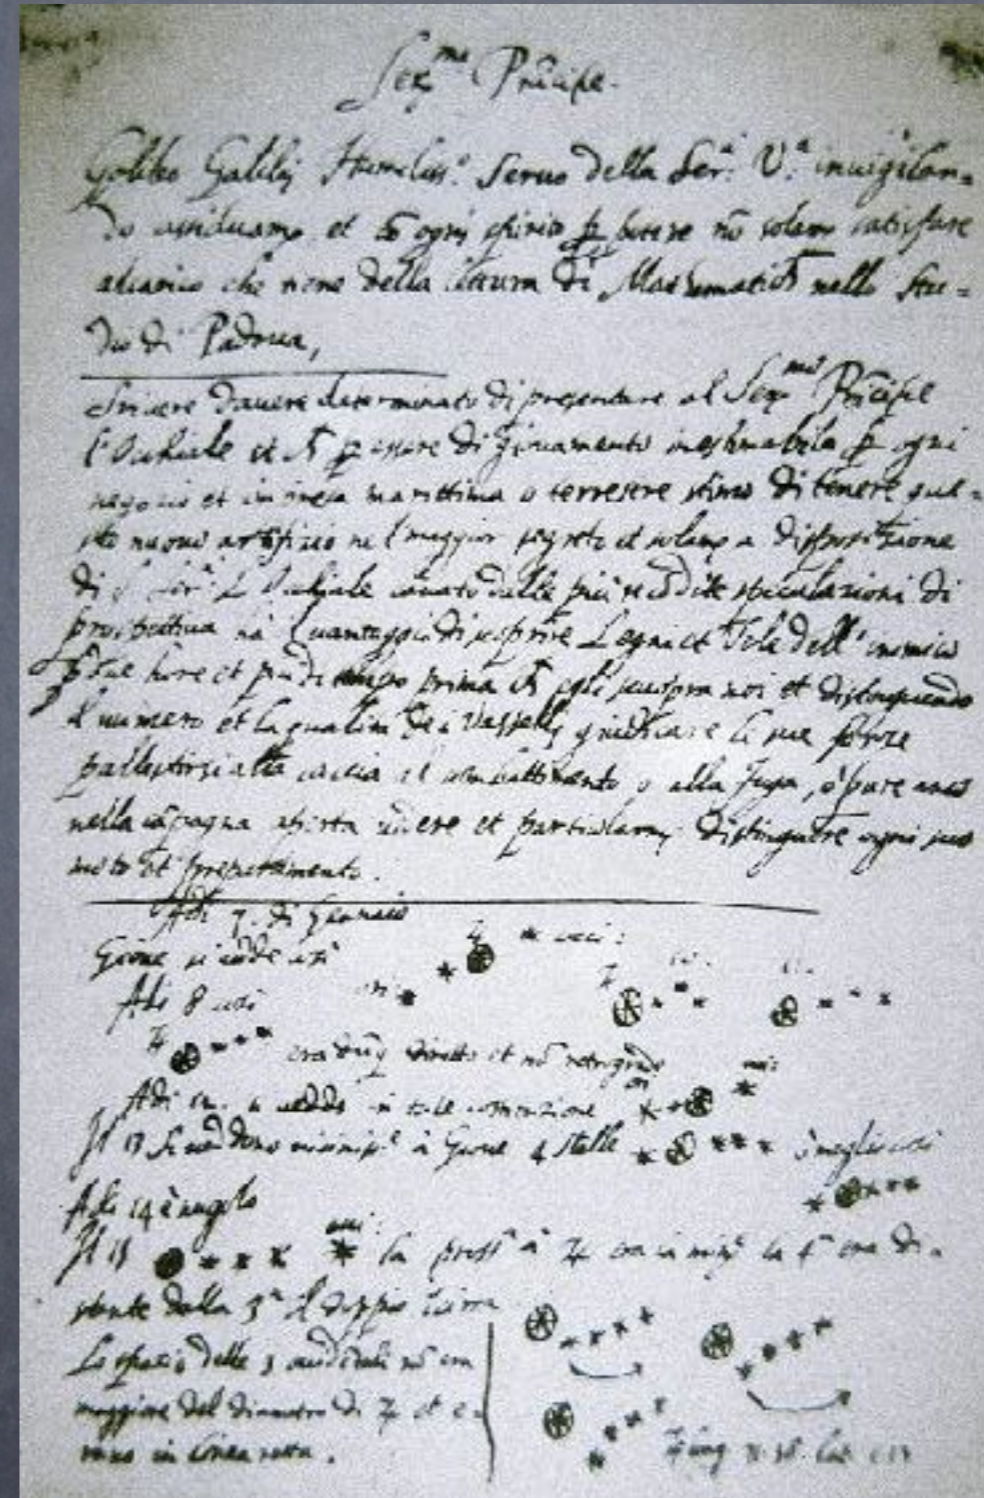 Ser.mo Prīcipe.
Galileo Galilej Humiliss.o Servo della Ser.a V.a invigilan=
do assiduam.te et cō ogni spirito p potere nō solam.te satisfare
al carico che tiene della lettura di Mathematich nello Stu=
dio di Padova,
Scrivere d'avere determinato di presentare al Ser.mo Prīcipe
l'Ochiale et p essere di giovamento inestimabile p ogni
negozio et impresa marittima o terrestre stimo di tenere que=
sto nuovo artifizio nel maggior segreto et solam.te a disposizione
di S. Ser.a L'Ochiale cavato dalle più recōdite speculazioni di
prospettiva ha il vantaggio di scoprire Legni et Vele dell'inimico
p due hore et più di tempo prima ch egli scuopra noi et distinguendo
il numero et la qualità de i Vasselli giudicare le sue forze
pallestirsi alla caccia al combattimento o alla fuga, o pure anco
nella cāpagna aperta vedere et particolarm.te distinguere ogni suo
moto et preparamento.
Adi 7. di Gennaio
Gione si vede così
occ:
Adi 8 così
ori:
era dūq diretto et nō retrogrado
Adi 12. si vedde in tale costituzione
ori occ:
Il 13 si veddono vicinis.e à Giove 4 stelle è meglio così
Adi 14 è nugolo
Il 15
occ:
la pross.a à ♃ era la min.e la 4.a era di=
stante dalla 3.a il doppio
Lo spazio delle 3 occidentali nō era
maggiore del diametro di ♃ et e=
rano in linea retta.
♃ long.